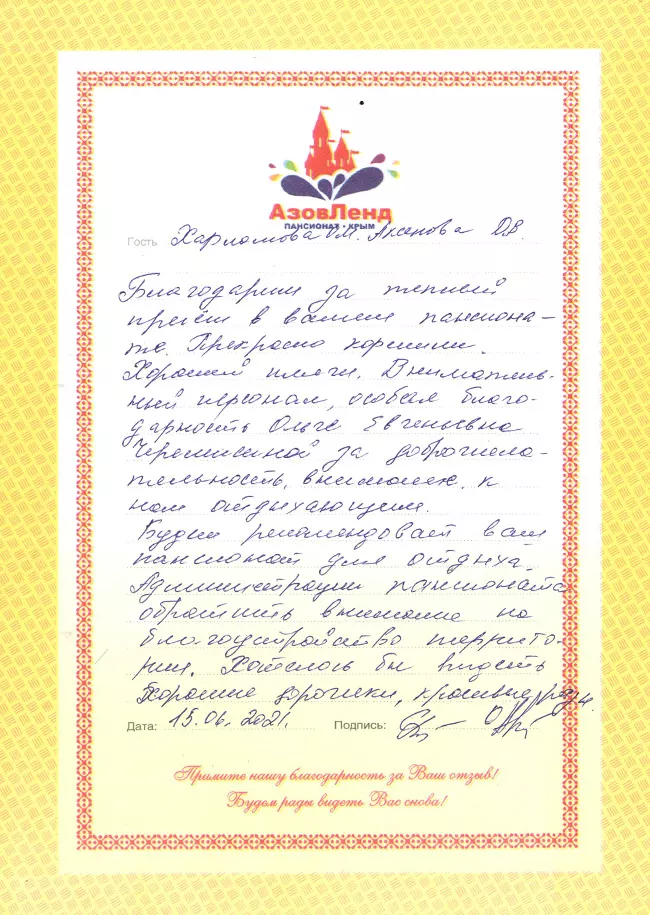 АзовЛенд
ПАНСИОНАТ • КРЫМ
Гость Харламова М. Аксенова О.В.
Благодарим за теплый
приём в вашем пансиона-
те. Прекрасно кормили.
Хороший пляж. Вниматель-
ный персонал, особая благо-
дарность Ольге Евгеньевне
Черемисиной за доброжела-
тельность, внимание к
нам отдыхающим.
Будем рекомендовать ваш
пансионат для отдыха.
Администрации пансионата
обратить внимание на
благоустройство террито-
рии. Хотелось бы видеть
хорошие дорожки, красивые
Дата: 15.06.2021. Подпись:
Примите нашу благодарность за Ваш отзыв!
Будем рады видеть Вас снова!